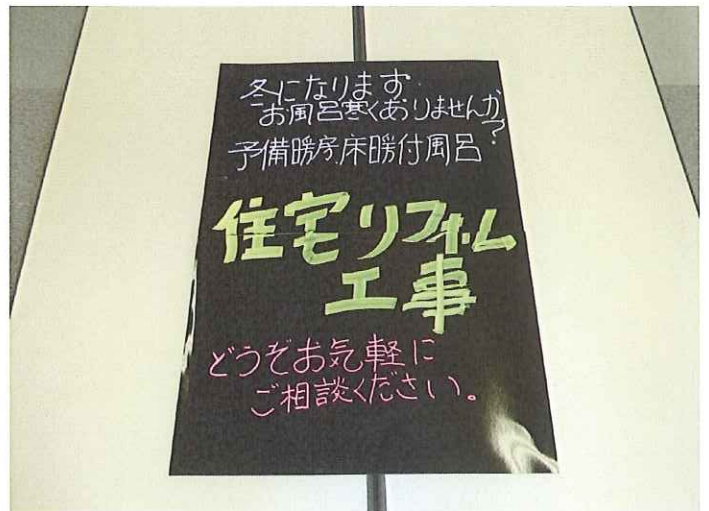 冬になります
お風呂寒くありませんか?
予備暖房、床暖付風呂
住宅リフォーム
工事
どうぞお気軽に
ご相談ください。